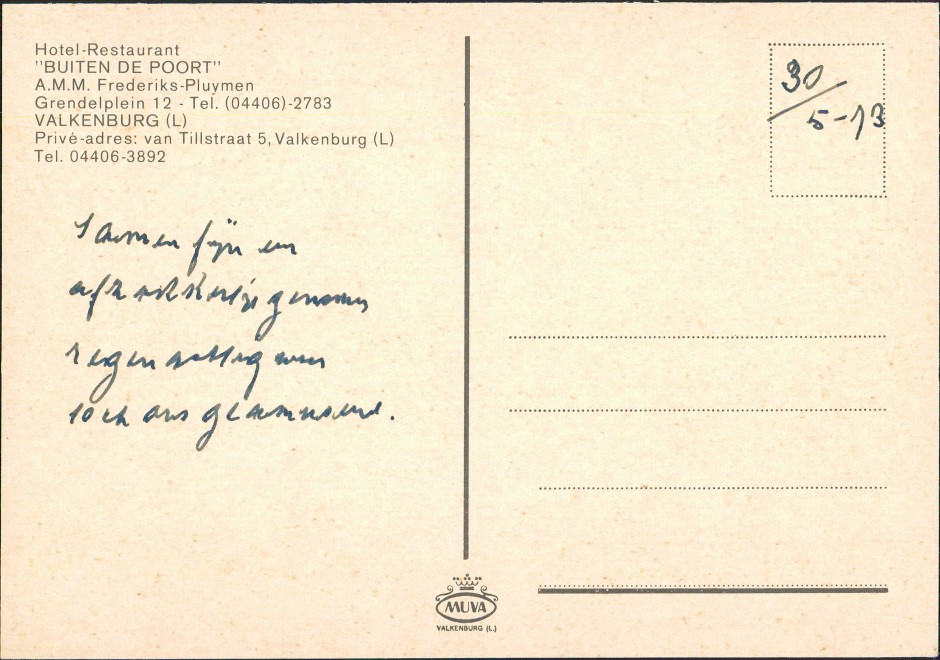 Hotel-Restaurant
"BUITEN DE POORT"
A.M.M. Frederiks-Pluymen
Grendelplein 12 - Tel. (04406)-2783
VALKENBURG (L)
Privé-adres: van Tillstraat 5, Valkenburg (L)
Tel. 04406-3892
30
5-73
Samen fijn een
genomen
regenachtig weer
toch ons geamuseerd.
MUVA
VALKENBURG (L.)